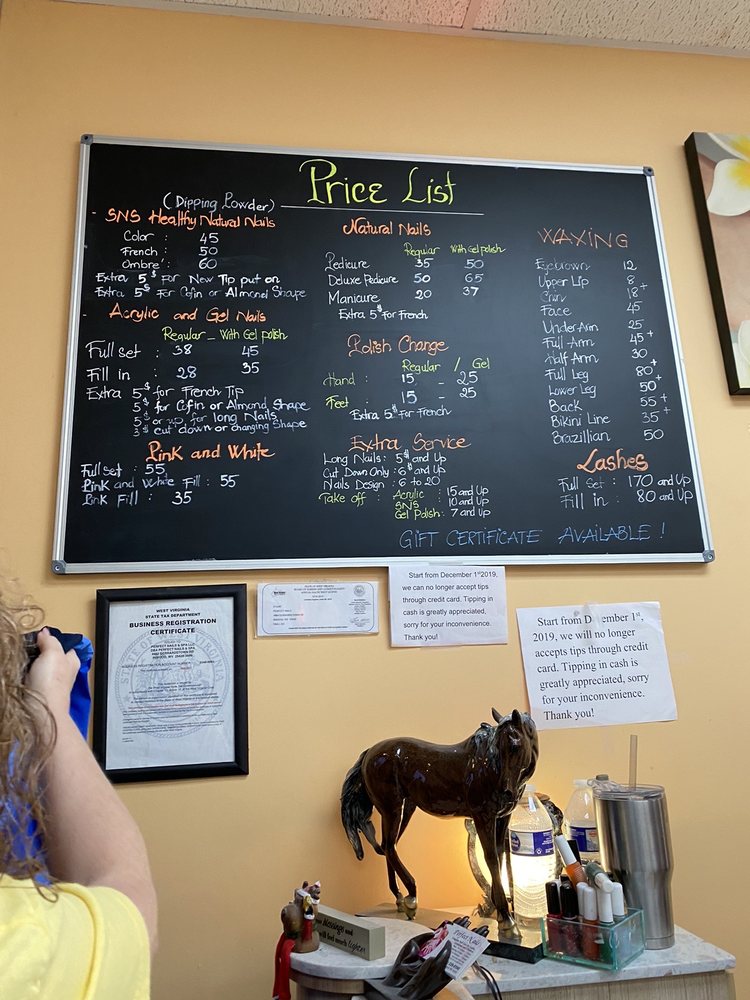 Price List
(Dipping Powder)
SNS Healthy Natural Nails
Color : 45
French : 50
Ombre : 60
Extra 5$ For New Tip put on
Extra 5$ For Cofin or Almond Shape
Acrylic and Gel Nails
Regular _ With Gel polish
Full set : 38 45
Fill in : 28 35
Extra 5$ for French Tip
5$ for Cofin or Almond Shape
5$ or up for long Nails
3$ cut down or changing Shape
Pink and White
Full set : 55
Pink and White Fill : 55
Pink Fill : 35
Natural Nails
Regular With Gel polish
Pedicure 35 50
Deluxe Pedicure 50 65
Manicure 20 37
Extra 5$ For French
Polish Change
Regular / Gel
Hand : 15 - 25
Feet : 15 - 25
Extra 5$ for French
Extra Service
Long Nails : 5$ and Up
Cut Down Only : 6$ and Up
Nails Design : 6 to 20
Take off : Acrylic : 15 and Up
SNS : 10 and Up
Gel Polish : 7 and Up
WAXING
Eyebrown 12
Upper Lip 8+
Chin 18+
Face 45
UnderArm 25+
Full Arm 45+
Half Arm 30
Full Leg 80+
Lower Leg 50+
Back 55+
Bikini Line 35+
Brazillian 50
Lashes
Full Set : 170 and Up
Fill in : 80 and Up
GIFT CERTIFICATE AVAILABLE !
WEST VIRGINIA
STATE TAX DEPARTMENT
BUSINESS REGISTRATION
CERTIFICATE
PERFECT NAILS & SPA LLC
DBA PERFECT NAILS & SPA
Start from December 1st2019,
we can no longer accept tips
through credit card. Tipping in
cash is greatly appreciated,
sorry for your inconvenience.
Thank you!
Start from D ember 1st,
2019, we will no longer
accepts tips through credit
card. Tipping in cash is
greatly appreciated, sorry
for your inconvenience.
Thank you!